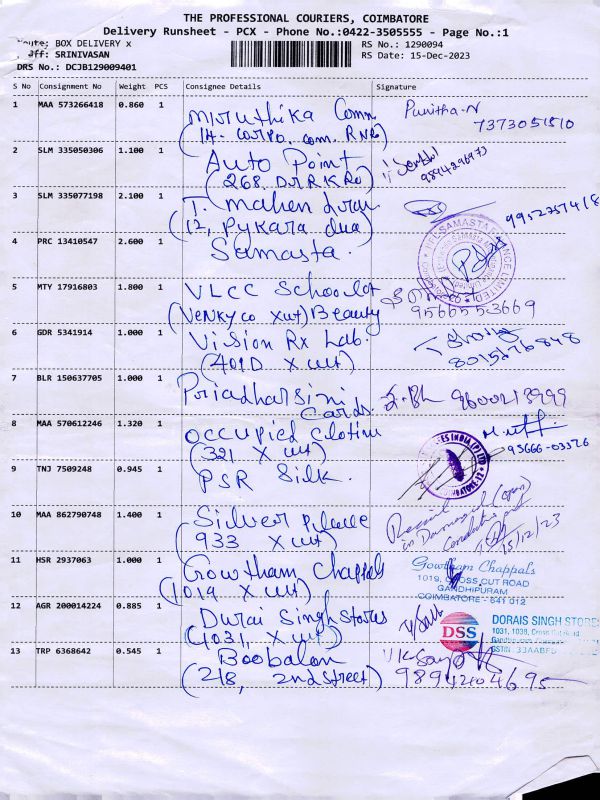 THE PROFESSIONAL COURIERS, COIMBATORE
Delivery Runsheet - PCX - Phone No.:0422-3505555 - Page No.:1
Route: BOX DELIVERY x
RS No.: 1290094
Jff: SRINIVASAN
RS Date: 15-Dec-2023
DRS No.: DCJB129009401
S No Consignment No Weight PCS Consignee Details Signature
1 MAA 573266418 0.860 1 Mruthika Comn Punitha-N
(14. Corpo. com. RNR) 7373051510
2 SLM 335050306 1.100 1 Auto Point
(268. DrRKRo) 9894296973
3 SLM 335077198 2.100 1 T. Mahendran 9952757418
(12, Pykara
4 PRC 13410547 2.600 1 Samasta.
SAMASTA FINANCE LIMITED
5 MTY 17916803 1.800 1 VLCC School of
(Venkyco xut) Beauty 9566553669
6 GDR 5341914 1.000 1 Vision Rx Lab.
(401D x cut) 8015176848
7 BLR 150637705 1.000 1 Priadharsini 9600213999
Cards.
8 MAA 570612246 1.320 1 Occupied Clotin
(321 x cut) 95666-03526
9 TNJ 7509248 0.945 1 PSR Silk.
INDIA (P) LTD
COIMBATORE-12
10 MAA 862790748 1.400 1 Silver Place
(933 x cut)
Received
in Damaged (open)
condition
15/12/23
11 HSR 2937063 1.000 1 Gowtham Chappals
(1019 x cut)
Gowtham Chappals
1019, CROSS CUT ROAD
GANDHIPURAM
COIMBATORE - 641 012
12 AGR 200014224 0.885 1 Durai Singh Stores
(1031, x cut)
DSS
DORAIS SINGH STORES
1031, 1038, Cross Cut Road
13 TRP 6368642 0.545 1 Boobalan
(218, 2nd Street) 9894204695